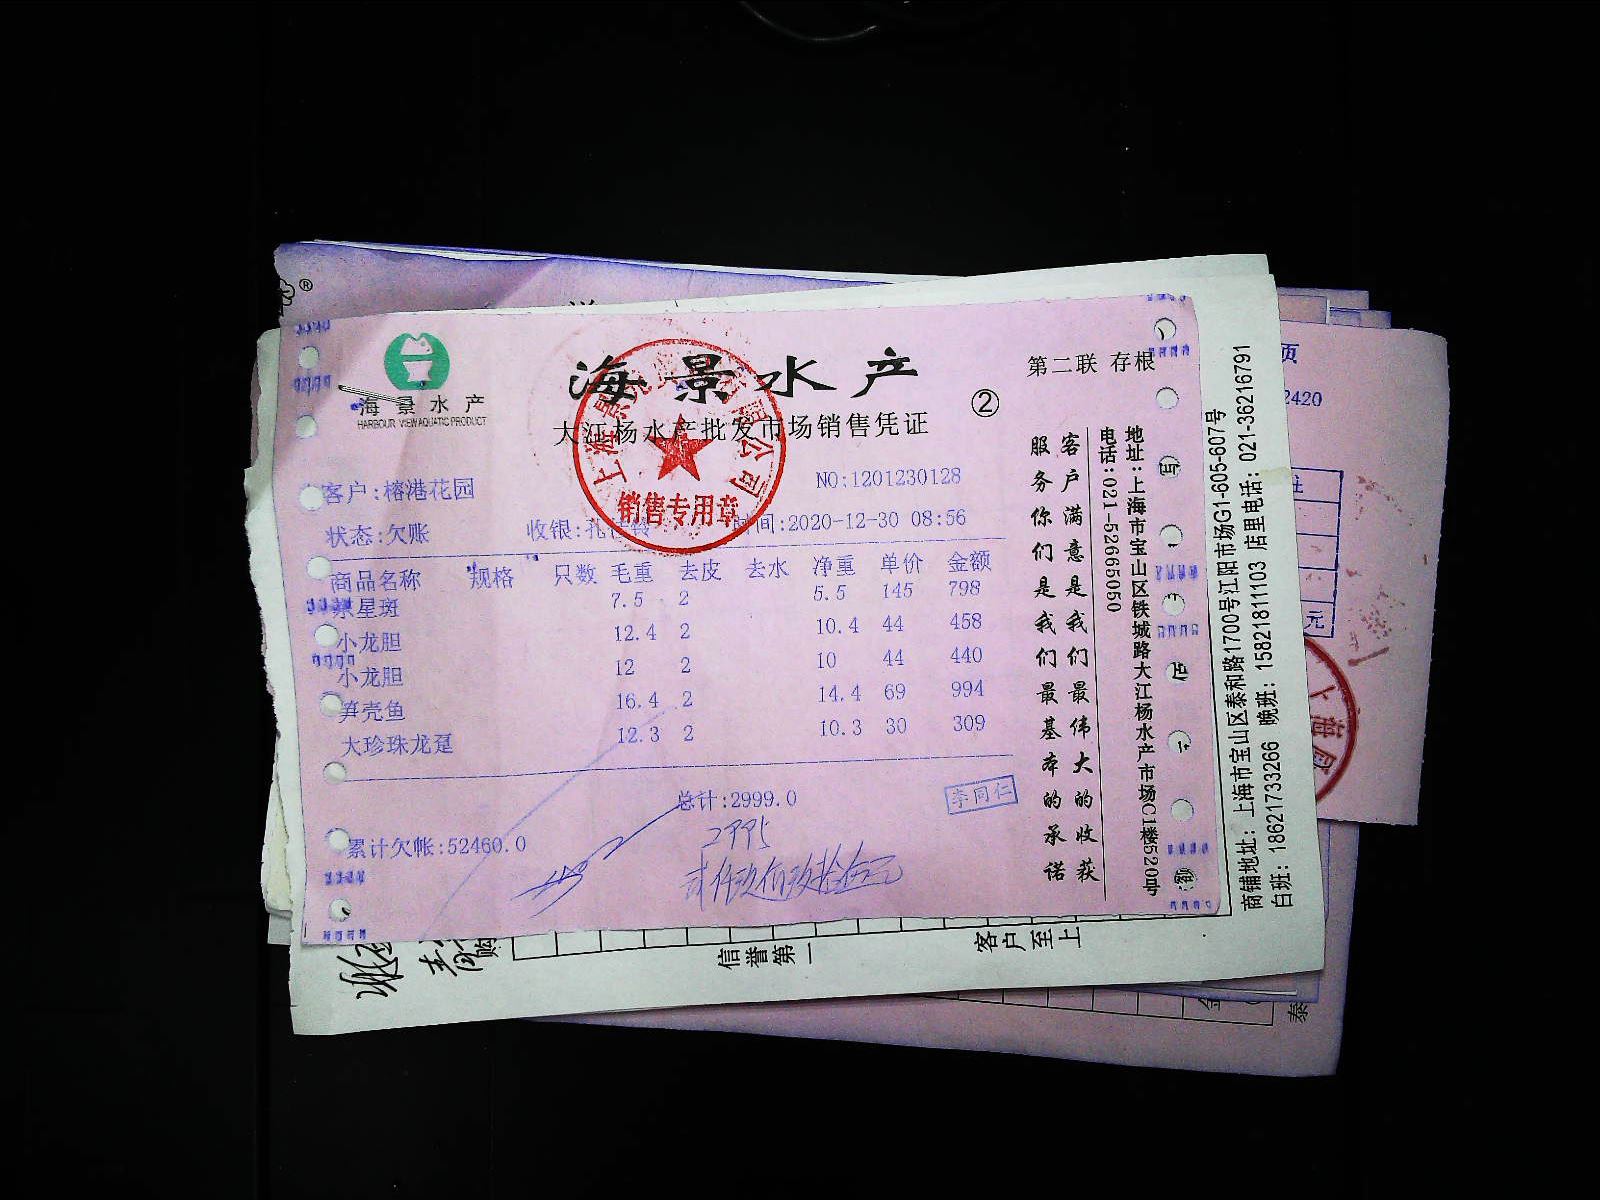 海景水产
HARBOUR VIEW AQUATIC PRODUCT
海景水产
大江杨水产批发市场销售凭证
②
第二联 存根
客户:榕港花园
NO:1201230128
状态:欠账
收银:孔
时间:2020-12-30 08:56
商品名称 规格 只数 毛重 去皮 去水 净重 单价 金额
东星斑 7.5 2 5.5 145 798
小龙胆 12.4 2 10.4 44 458
小龙胆 12 2 10 44 440
笋壳鱼 16.4 2 14.4 69 994
大珍珠龙趸 12.3 2 10.3 30 309
总计:2999.0
李同仁
累计欠帐:52460.0
2995
贰仟玖佰玖拾伍元
销售专用章
客户满意是我们最伟大的收获
服务你们是我们最基本的承诺
地址:上海市宝山区铁城路大江杨水产市场C1楼520号
电话:021-52665050
商铺地址:上海市宝山区泰和路1700号江阳市场G1-605-607号
白班:18621733266 晚班:15821811103 店里电话:021-36216791
信誉第一
客户至上
购
页
2420
元
上海
泰